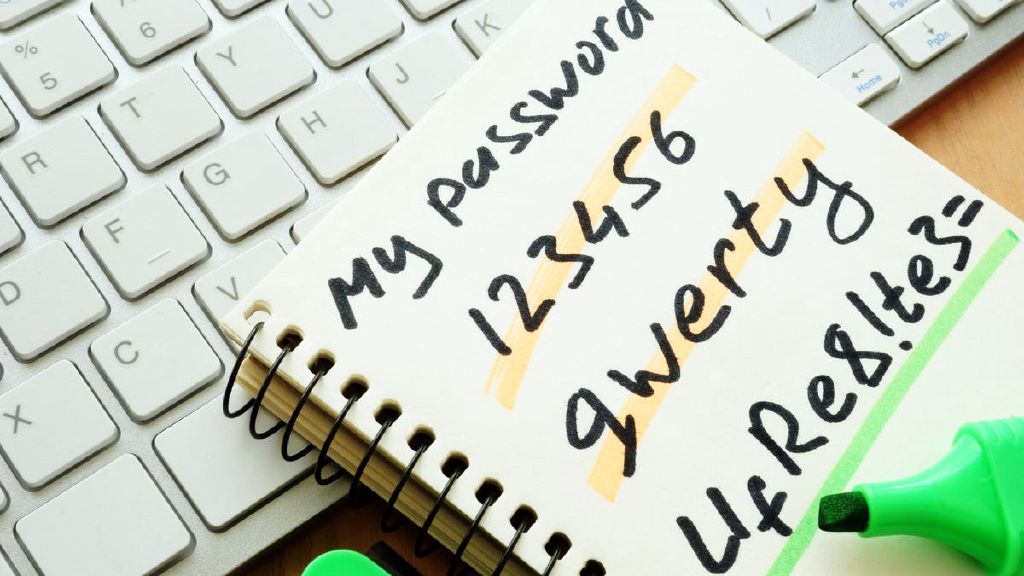 My password
123456
qwerty
UfRe8!te3=
% 5
6
R T Y U
D F G H J K
X C V
/
← Home
↓ PgDn